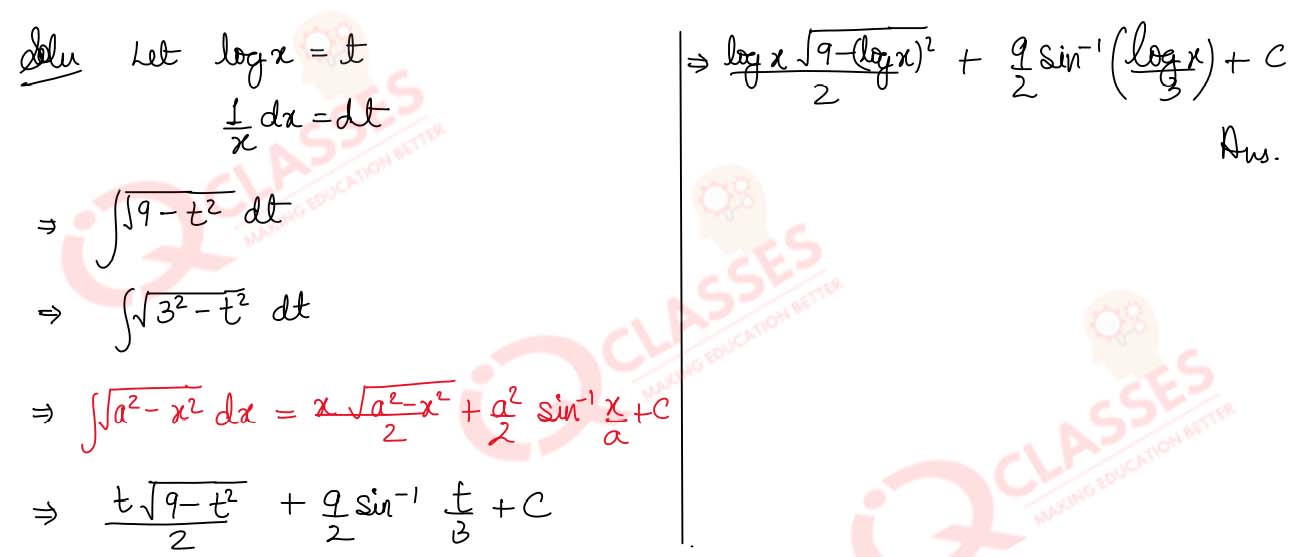 Solu Let log x = t
1/x dx = dt
⇒ ∫√(9 - t²) dt
⇒ ∫√(3² - t²) dt
⇒ ∫√(a² - x²) dx = x √(a² - x²)/2 + a²/2 sin⁻¹ x/a + C
⇒ t√(9 - t²)/2 + 9/2 sin⁻¹ t/3 + C
⇒ log x √(9 - (log x)²)/2 + 9/2 sin⁻¹ (log x/3) + C
Ans.
iQ CLASSES
MAKING EDUCATION BETTER
iQ CLASSES
MAKING EDUCATION BETTER
iQ CLASSES
MAKING EDUCATION BETTER